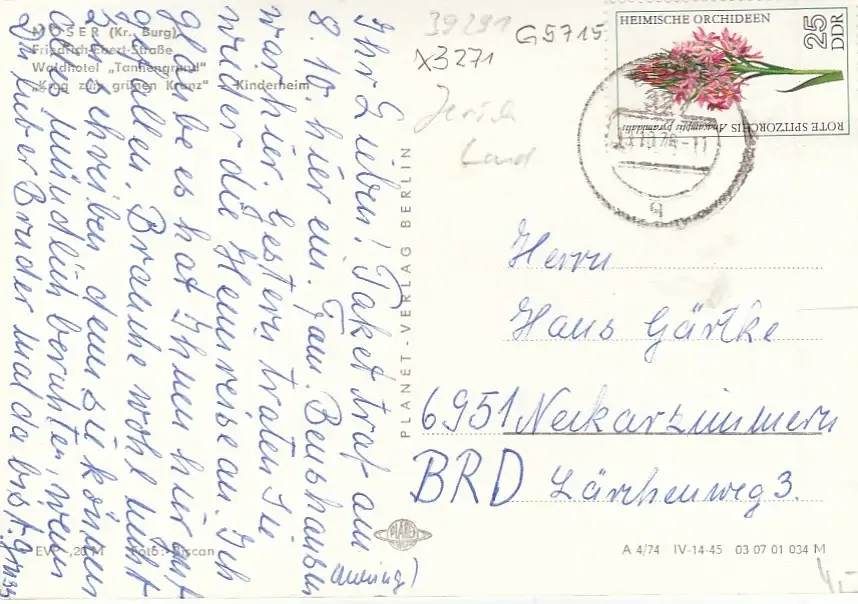 MÖSER (Kr. Burg)
Friedrich-Ebert-Straße
Waldhotel „Tannengrund“
„Krug zum grünen Kranz“ Kinderheim
Ihr Lieben! Paket traf am
8.10. hier ein. Fam. Benshausen
(Anning)
war hier. Gestern traten Sie
wieder die Heimreise an. Ich
glaube es hat Ihnen hier gut
gefallen. Brauche wohl nicht
zu schreiben denn sie können
alles mündlich berichten, wenn
Du lieber Bruder mal da bist. Gruss
PLANET-VERLAG BERLIN
39291
X3271
G5715
Land
HEIMISCHE ORCHIDEEN
25
DDR
ROTE SPITZORCHIS Anacamptis pyramidalis
Herrn
Hans Gärtke
6951 Neckarzimmern
BRD Lärchenweg 3.
EVP -,20 M Foto: Biscan
PLANET
A 4/74 IV-14-45 03 07 01 034 M
4,-